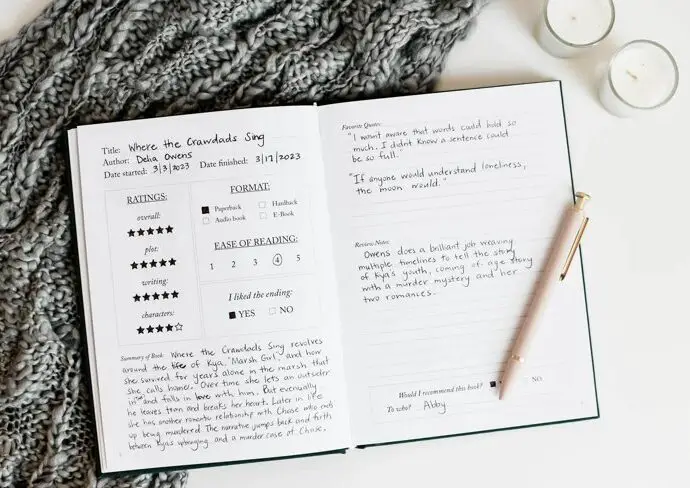 Title: Where the Crawdads Sing
Author: Delia Owens
Date started: 3/3/2023 Date finished: 3/17/2023
RATINGS:
overall:
plot:
writing:
characters:
FORMAT:
Paperback Hardback
Audio book E-Book
EASE OF READING:
1 2 3 4 5
I liked the ending:
YES NO
Summary of Book: Where the Crawdads Sing revolves
around the life of Kya, "Marsh Girl", and how
she survived for years alone in the marsh that
she calls home. Over time she lets an outsider
in and falls in love with him. But eventually
he leaves town and breaks her heart. Later in life
she has another romantic relationship with Chase who ends
up being murdered. The narrative jumps back and forth
between Kya's upbringing and a murder case of Chase.
Favorite Quotes:
"I wasn't aware that words could hold so
much. I didn't know a sentence could
be so full."
"If anyone would understand loneliness,
the moon would."
Review Notes:
Owens does a brilliant job weaving
multiple timelines to tell the story
of Kya's youth, coming of age story
with a murder mystery and her
two romances.
Would I recommend this book? NO
To who? Abby